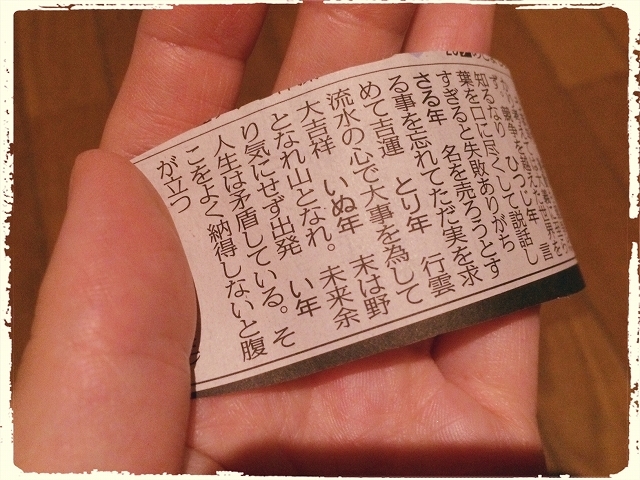 知るなり　ひつじ年　言
葉を口に尽くして説話し
すぎると失敗ありがち
さる年　名を売ろうとす
る事を忘れてただ実を求
めて吉運　とり年　行雲
流水の心で大事を為して
大吉祥　いぬ年　末は野
となれ山となれ。未来余
り気にせず出発　い年
人生は矛盾している。そ
こをよく納得しないと腹
が立つ